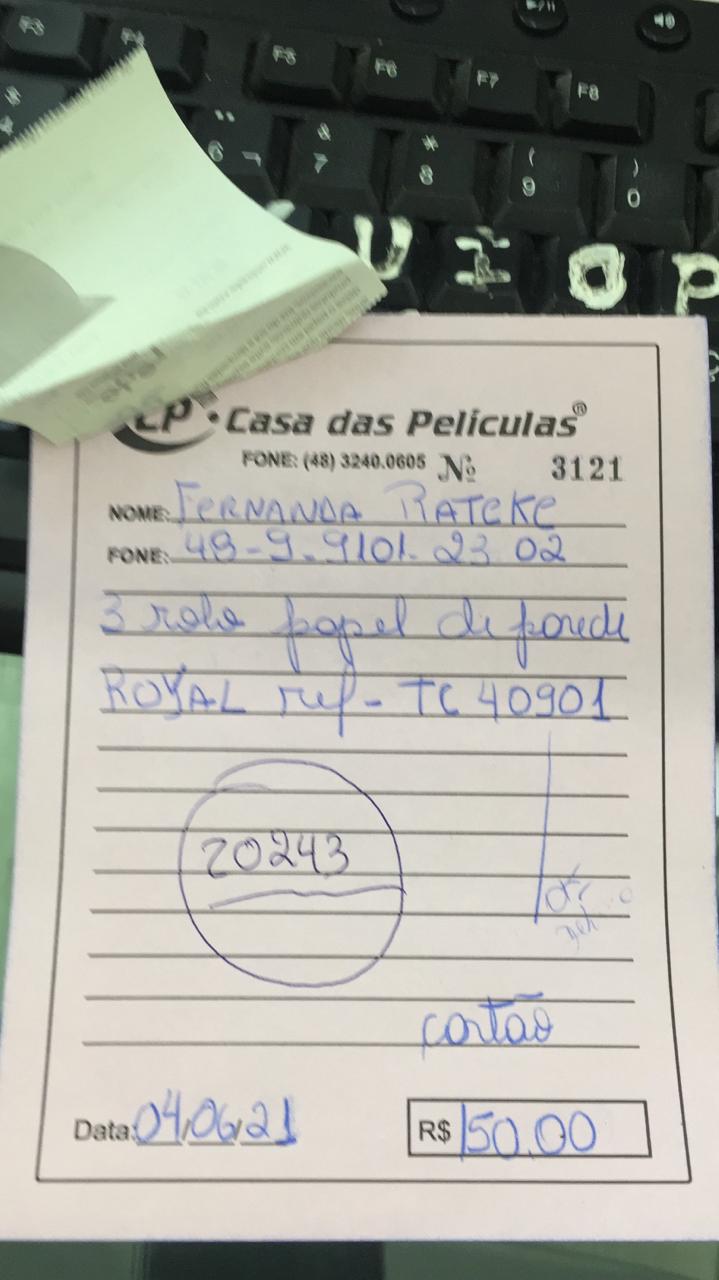 F3 F4 F5 F6 F7 F8
$ 4 6 ¬ & 7 * 8 ( 9 ) 0
U I O P
CP · Casa das Películas®
FONE: (48) 3240.0605 Nº 3121
NOME: FERNANDA RATEKE
FONE: 48-9.9101.23 02
3 rolo papel de parede
ROYAL ref- TC 40901
20243
cartão
Data: 04/06/21 R$ 150,00